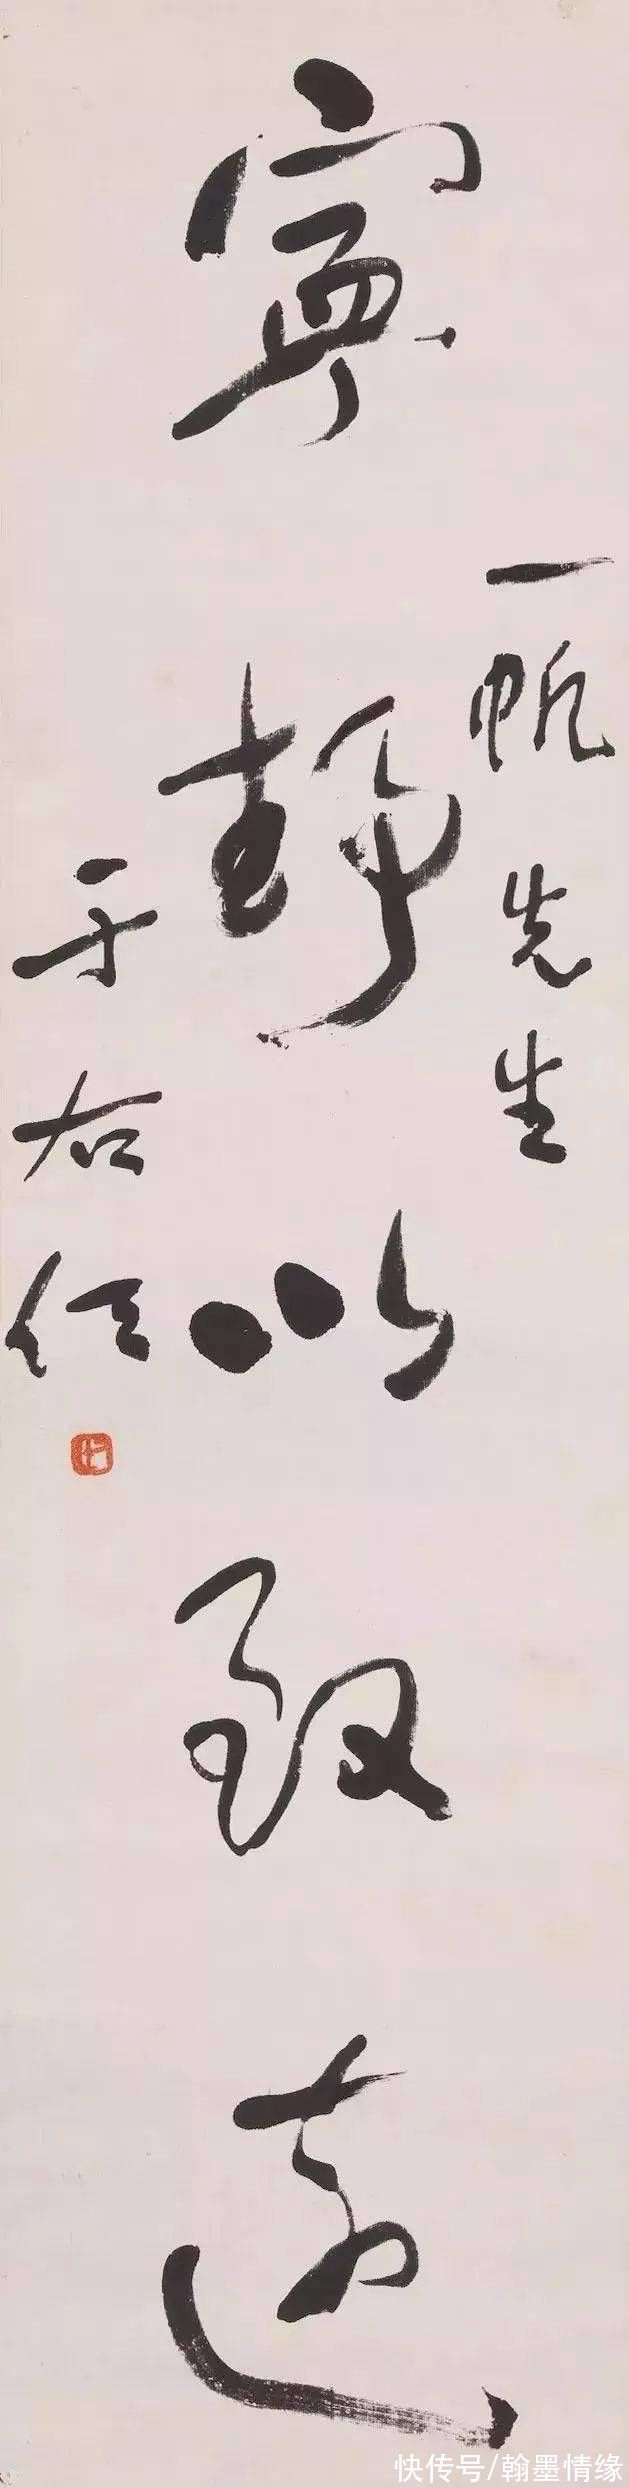 一帆先生
寧静以致遠
于右任
快传号/翰墨情缘